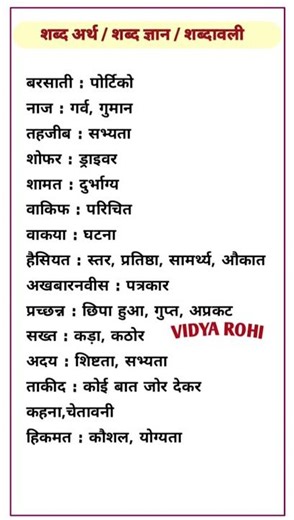 शब्द अर्थ / शब्द ज्ञान / शब्दावली
बरसाती : पोर्टिको
नाज : गर्व, गुमान
तहजीब : सभ्यता
शोफर : ड्राइवर
शामत : दुर्भाग्य
वाकिफ : परिचित
वाकया : घटना
हैसियत : स्तर, प्रतिष्ठा, सामर्थ्य, औकात
अखबारनवीस : पत्रकार
प्रच्छन्न : छिपा हुआ, गुप्त, अप्रकट
सख्त : कड़ा, कठोर
VIDYA ROHI
अदय : शिष्टता, सभ्यता
ताकीद : कोई बात जोर देकर
कहना,चेतावनी
हिकमत : कौशल, योग्यता